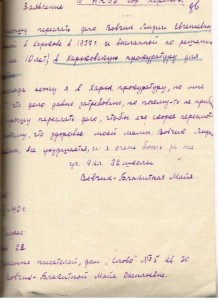 Заявление
86
переслать дело Вовчик Лидии Евгеньевны
в Харькове в 1937 г и высланной по решению
на 10 лет) в Харьковскую прокуратуру для
хожу я в Харьк прокуратуру, но мне
что дело давно затребовано, но почему-то не
переслать дело, чтобы его скорее
что здоровье моей мамы, Вовчик Лиди
все ухудшается, и я очень боюсь за нее
уч. 9 кл. 82 школы
Вовчик-Блакитная Майя.
40 г.
22
писателей, дом "Слово" № 5 кв. 20.
Вовчик-Блакитной Майе Васильевне.